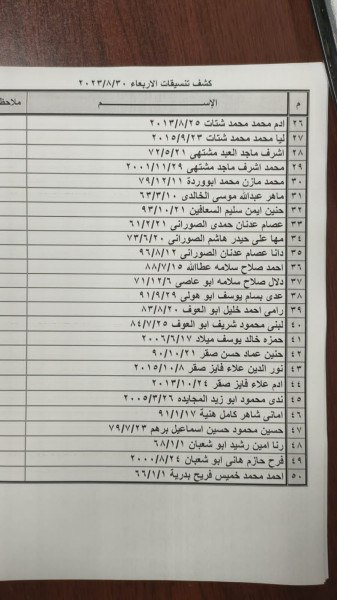 كشف تنسيقات الاربعاء ٢٠٢٣/٨/٣٠
م الإســـــم ملاحظ
٢٦ ادم محمد محمد شتات ٢٠١٣/٨/٢٥
٢٧ ليا محمد محمد شتات ٢٠١٥/٩/٢٣
٢٨ اشرف ماجد العبد مشتهى ٧٢/٥/٢١
٢٩ محمد اشرف ماجد مشتهى ٢٠٠١/١١/٢٩
٣٠ محمد مازن محمد ابووردة ٧٩/١٢/١١
٣١ ماهر عبدالله موسى الخالدى ٦٣/٣/١٠
٣٢ حنين ايمن سليم السعافين ٩٣/١٠/٢١
٣٣ عصام عدنان حمدى الصورانى ٦١/٢/٢١
٣٤ مها على حيدر هاشم الصورانى ٧٣/٦/٢٠
٣٥ دانا عصام عدنان الصورانى ٩٦/٨/١٢
٣٦ احمد صلاح سلامه عطاالله ٨٨/٧/١٥
٣٧ دلال صلاح سلامه ابو عاصى ٧١/١٢/٦
٣٨ عدى بسام يوسف ابو هولى ٩١/٩/٢٩
٣٩ رامى احمد خليل ابو العوف ٨٣/٨/٢٠
٤٠ لبنى محمود شريف ابو العوف ٨٤/٧/٢٥
٤١ حمزه خالد يوسف ميلاد ٢٠٠٦/٦/١٧
٤٢ حنين عماد حسن صقر ٩٠/١٠/٢١
٤٣ نور الدين علاء فايز صقر ٢٠١٥/١٠/٨
٤٤ ادم علاء فايز صقر ٢٠١٣/١٠/٢٤
٤٥ ندى محمود ابو زيد المجايده ٢٠٠٥/٣/٢٦
٤٦ امانى شاهر كامل هنية ٩١/١/١٧
٤٧ حسين محمود حسين اسماعيل برهم ٧٩/٧/٢٣
٤٨ رنا امين رشيد ابو شعبان ٦٨/١/١
٤٩ فرح حازم هانى ابو شعبان ٢٠٠٠/٨/٢٤
٥٠ احمد محمد خميس فريح بدرية ٦٦/١/١